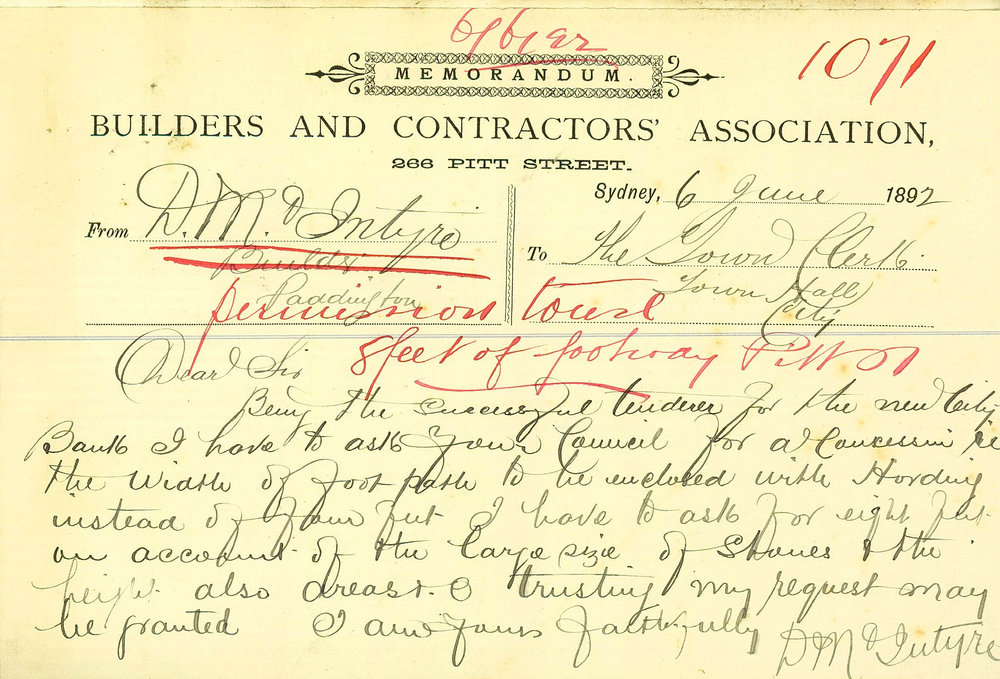 6/6/92
1071
MEMORANDUM.
BUILDERS AND CONTRACTORS' ASSOCIATION,
266 PITT STREET.
Sydney, 6 June 1892
From D. McIntyre
Builder
Paddington
To The Town Clerk
Town Hall
City
permission to use
8 feet of footway Pitt St
Dear Sir
Being the successful tenderer for the new City
Bank I have to ask your Council for a Concession ie
the width of foot path to be enclosed with Hording
instead of four feet I have to ask for eight feet
on account of the large size of Stones & the
height also areas &c trusting my request may
be granted I am yours faithfully D McIntyre